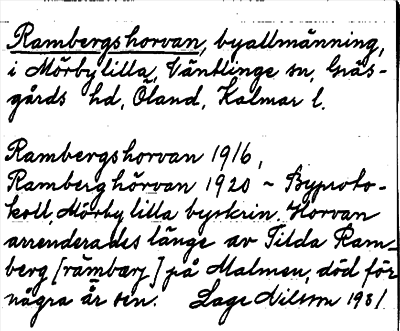 Rambergshorvan, byallmänning,
i Mörbylilla, Ventlinge sn, Gräs-
gårds hd, Öland, Kalmar l.
Rambergshorvan 1916,
Ramberghörvan 1920 ~ Byproto-
koll, Mörby lilla byskrin. Horvan
arrenderades länge av Tilda Ram-
berg [rämbarj] på Malmen, död för
några år sen. Lage Nilsson 1981